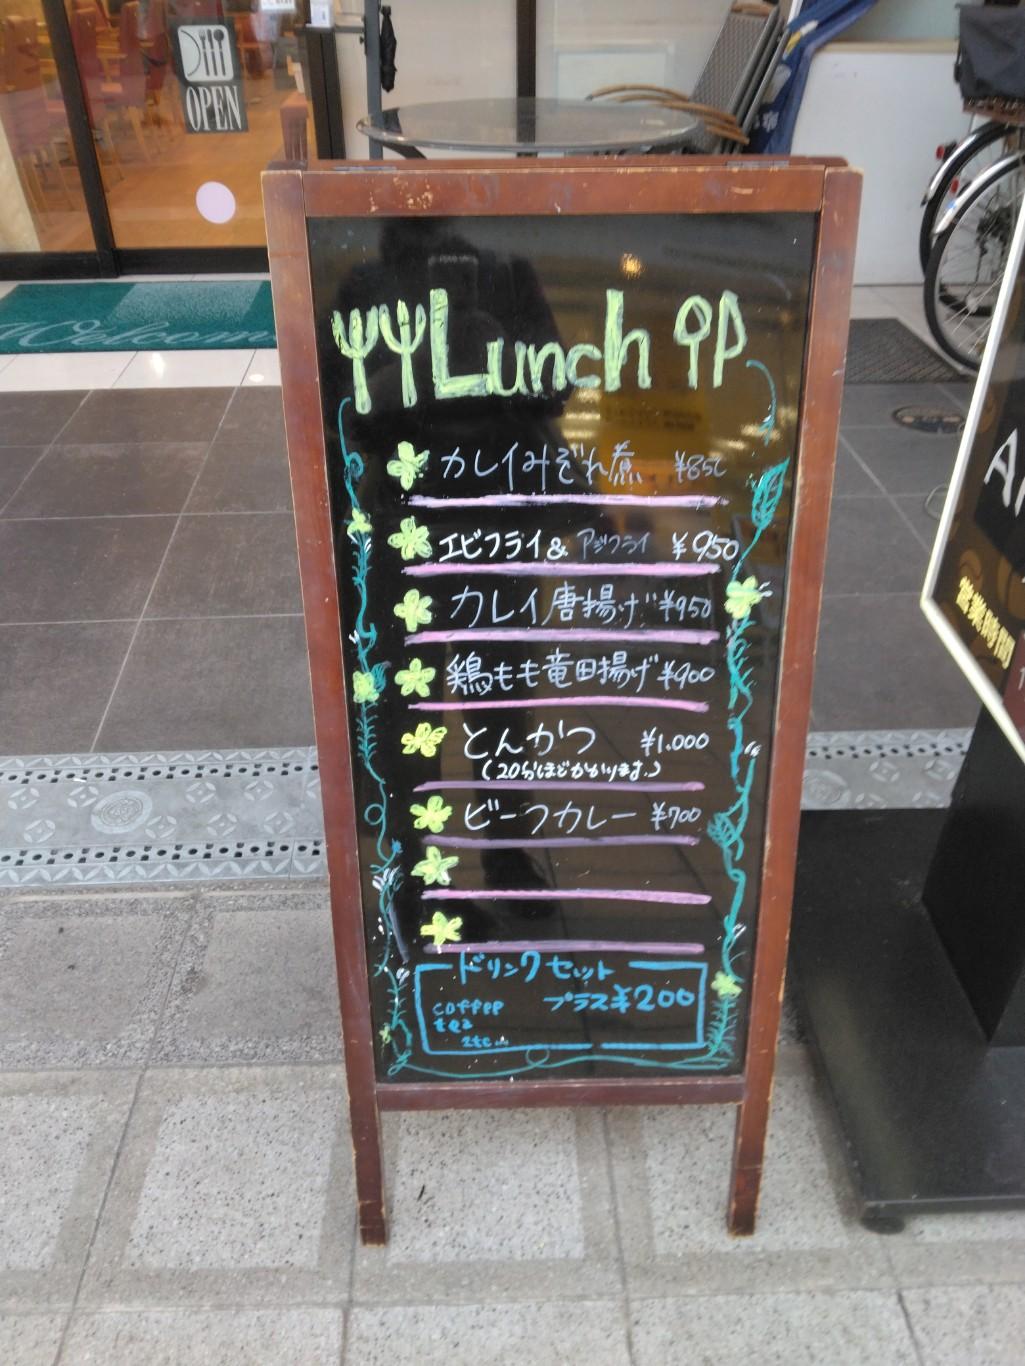 OPEN
Welcome
Lunch
カレイみぞれ煮 ¥850
エビフライ& アジフライ ¥950
カレイ唐揚げ ¥950
鶏もも竜田揚げ ¥900
とんかつ ¥1.000
(20分ほどかかります。)
ビーフカレー ¥700
ドリンクセット
プラス¥200
coffee
tea
etc...
営業時間